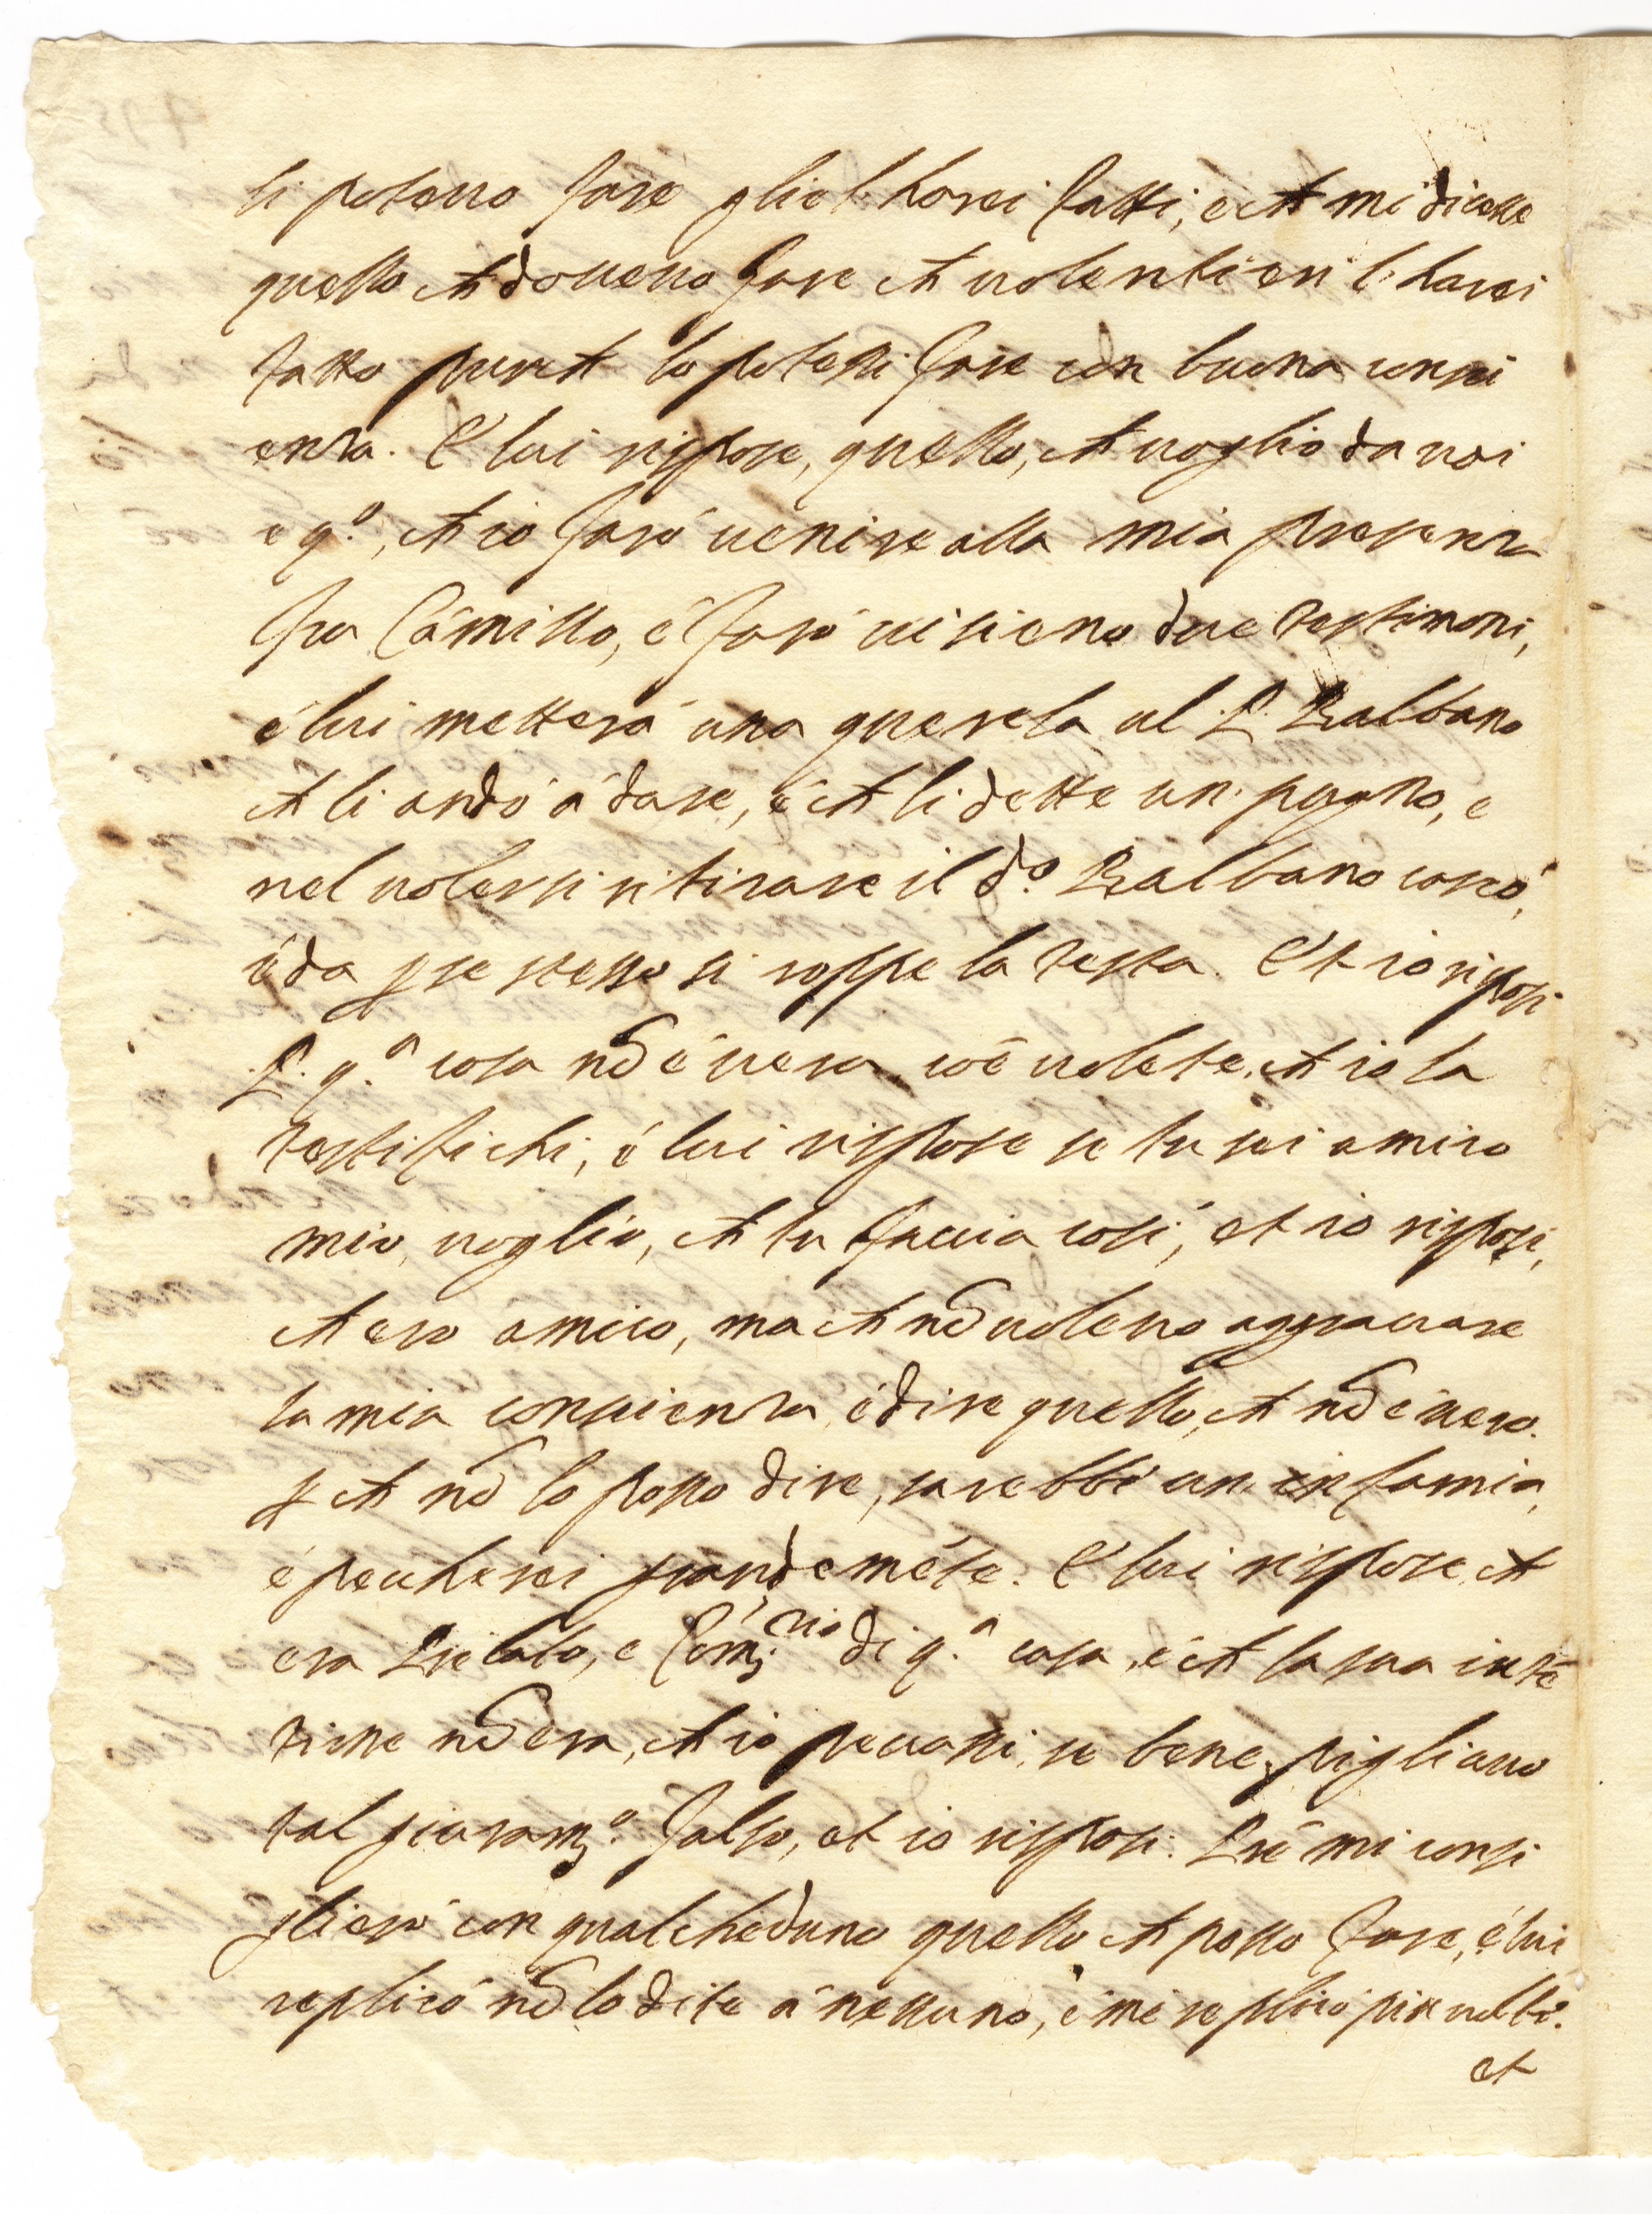 li potevo fare gliel' havrei fatti, e ch mi dicesse
quello ch dovevo fare ch volentieri l' havrei
fatto purch lo potessi fare con buona consci
enza. E' lui rispose, quello, ch voglio da voi
e q.º, ch io farò venire alla mia presenza
fra Camillo, é farò vi sieno due testimoni,
é lui metterà una querela al P. Balbano
ch li andò á dare, é ch li dette un pugno, e
nel volersi ritirare il dº. Balbano cascò,
é da per se stesso si roppe la testa. Et io risposi
P. q.ª cosa nō é vera, coē volete, ch io la
testifichi, é lui rispose se tu sei amico
mio, voglio, ch tu faccia cosi, et io risposi,
ch ero amico, ma ch nō volevo aggravare
la mia conscienza, é dire quello, ch nō é vero.
pch nō lo posso dire, sarebbe un infamia,
é peccherei grandemēte. E' lui rispose, ch
era Prelato, e Comiss.rio di q.ª cosa, é ch la sua intē
tione nō era, ch io peccassi, se bene pigliavo
tal giuram.º falso, et io risposi. Prē mi consi
glierò con qualcheduno quello ch posso fare, é lui
replicò nō lo dite á nessuno, é me replicò piu volte.
et